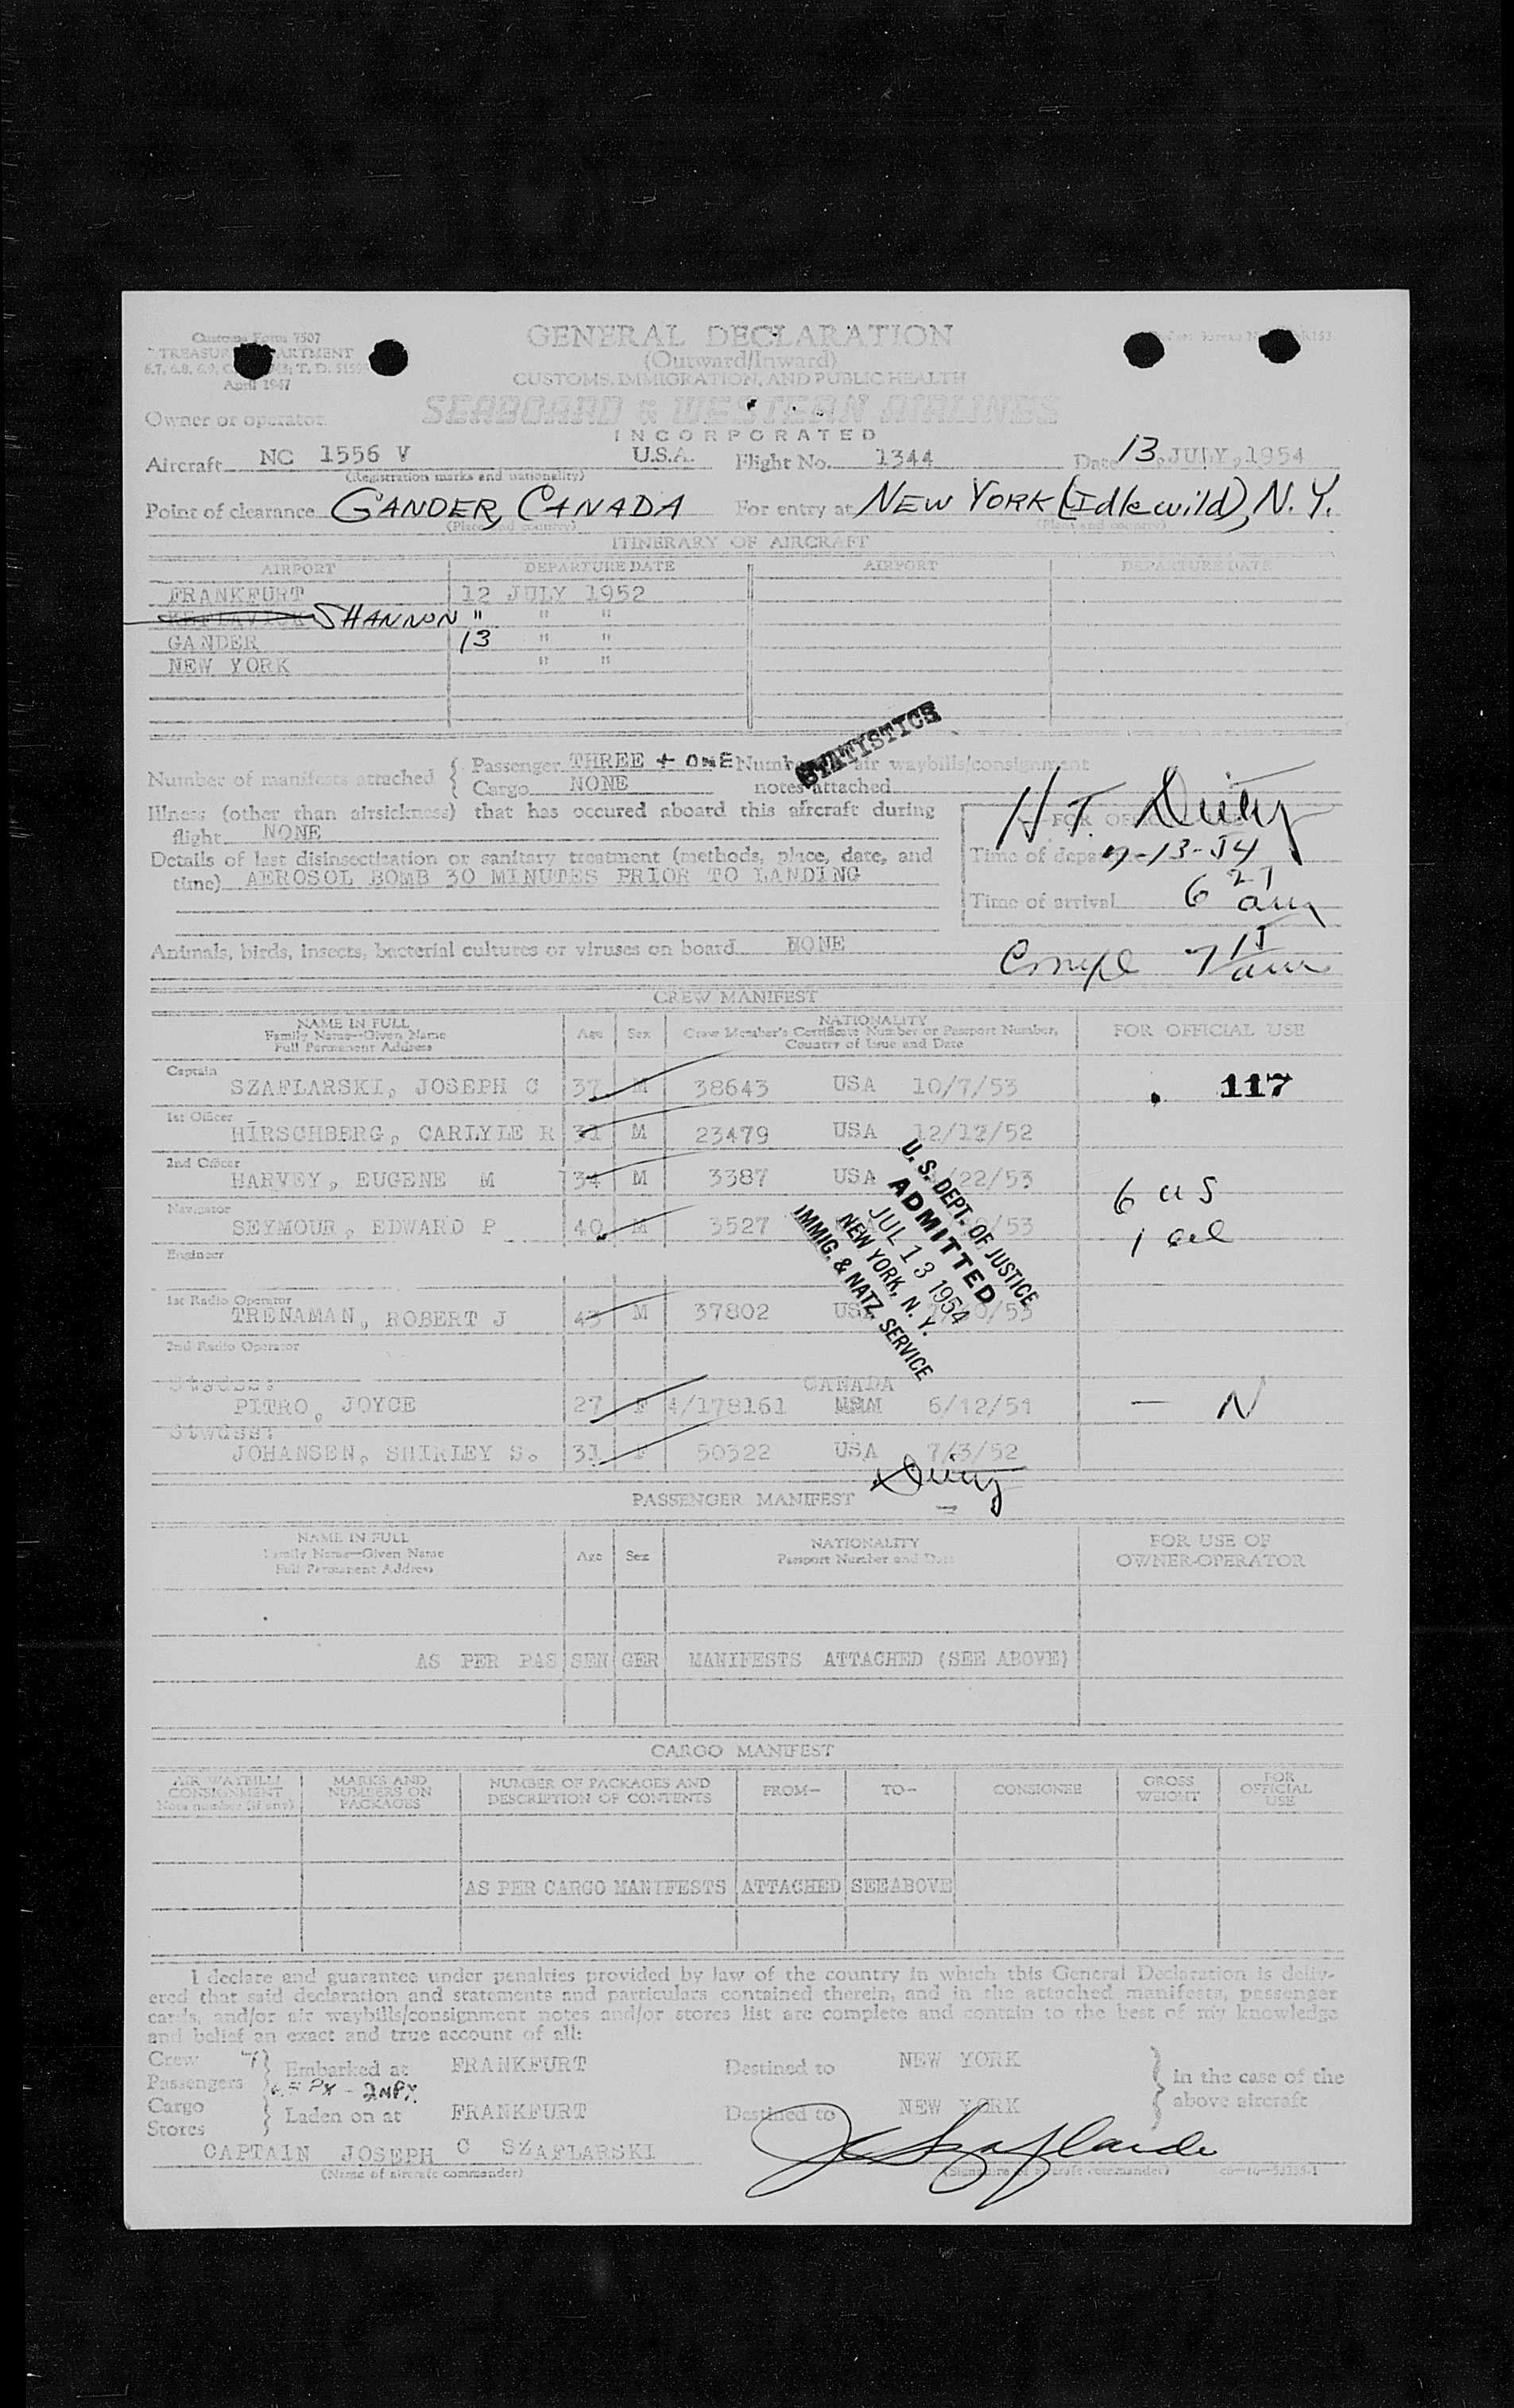 Customs Form 7507
TREASURY DEPARTMENT
April 1947
GENERAL DECLARATION
(Outward/Inward)
CUSTOMS, IMMIGRATION, AND PUBLIC HEALTH
Owner or operator
SEABOARD & WESTERN AIRLINES
INCORPORATED
Aircraft NC 1556 V U.S.A. Flight No. 1344 Date 13, JULY, 1954
(Registration marks and nationality)
Point of clearance GANDER, CANADA For entry at NEW YORK (Idlewild), N.Y.
(Place and country) (Place and country)
ITINERARY OF AIRCRAFT
AIRPORT DEPARTURE DATE AIRPORT DEPARTURE DATE
FRANKFURT 12 JULY 1952
KEFLAVICK SHANNON " " "
GANDER 13 " "
NEW YORK " "
STATISTICS
Number of manifests attached { Passenger THREE + ONE Number air waybills/consignment
Cargo NONE notes attached
Illness (other than airsickness) that has occured aboard this aircraft during
flight NONE
H T. Duty
FOR OFFICIAL USE
Details of last disinsectisation or sanitary treatment (methods, place, date, and
time) AEROSOL BOMB 30 MINUTES PRIOR TO LANDING
Time of departure 7-13-54
Time of arrival 6 27 am
Animals, birds, insects, bacterial cultures or viruses on board NONE
Compl 7 15 am
CREW MANIFEST
NAME IN FULL
Family Name—Given Name
Full Permanent Address
Age Sex
NATIONALITY
Crew Member's Certificate Number or Passport Number,
Country of Issue and Date
FOR OFFICIAL USE
Captain
SZAFLARSKI, JOSEPH C 37 M 38643 USA 10/7/53 117
1st Officer
HIRSCHBERG, CARLYLE R 31 M 23479 USA 12/12/52
2nd Officer
HARVEY, EUGENE M 34 M 3387 USA /22/53
6 US
Navigator
SEYMOUR, EDWARD P 40 M 3527 /53
1 ael
Engineer
1st Radio Operator
TRENAMAN, ROBERT J 43 M 37802 US
2nd Radio Operator
U. S. DEPT. OF JUSTICE
ADMITTED
JUL 13 1954
NEW YORK, N. Y.
IMMIG. & NATZ. SERVICE
Stwdss:
CANADA
PITRO, JOYCE 27 F 4/178161 6/12/51 — N
Stwdss:
JOHANSEN, SHIRLEY S. 31 F 50322 USA 7/3/52
Duty
PASSENGER MANIFEST
NAME IN FULL
Family Name—Given Name
Full Permanent Address
Age Sex
NATIONALITY
Passport Number and Date
FOR USE OF
OWNER-OPERATOR
AS PER PAS SEN GER MANIFESTS ATTACHED (SEE ABOVE)
CARGO MANIFEST
AIR WAYBILL/
CONSIGNMENT
Note number (if any)
MARKS AND
NUMBERS ON
PACKAGES
NUMBER OF PACKAGES AND
DESCRIPTION OF CONTENTS
FROM—
TO—
CONSIGNEE
GROSS
WEIGHT
FOR
OFFICIAL
USE
AS PER CARGO MANIFESTS ATTACHED SEEABOVE
I declare and guarantee under penalties provided by law of the country in which this General Declaration is deliv-
ered that said declaration and statements and particulars contained therein, and in the attached manifests, passenger
cards, and/or air waybills/consignment notes and/or stores list are complete and contain to the best of my knowledge
and belief an exact and true account of all:
Crew 7 } Embarked at FRANKFURT Destined to NEW YORK
Passengers
Cargo } Laden on at FRANKFURT Destined to NEW YORK
Stores
} In the case of the
above aircraft
CAPTAIN JOSEPH C SZAFLARSKI
(Name of aircraft commander) (Signature of aircraft commander)